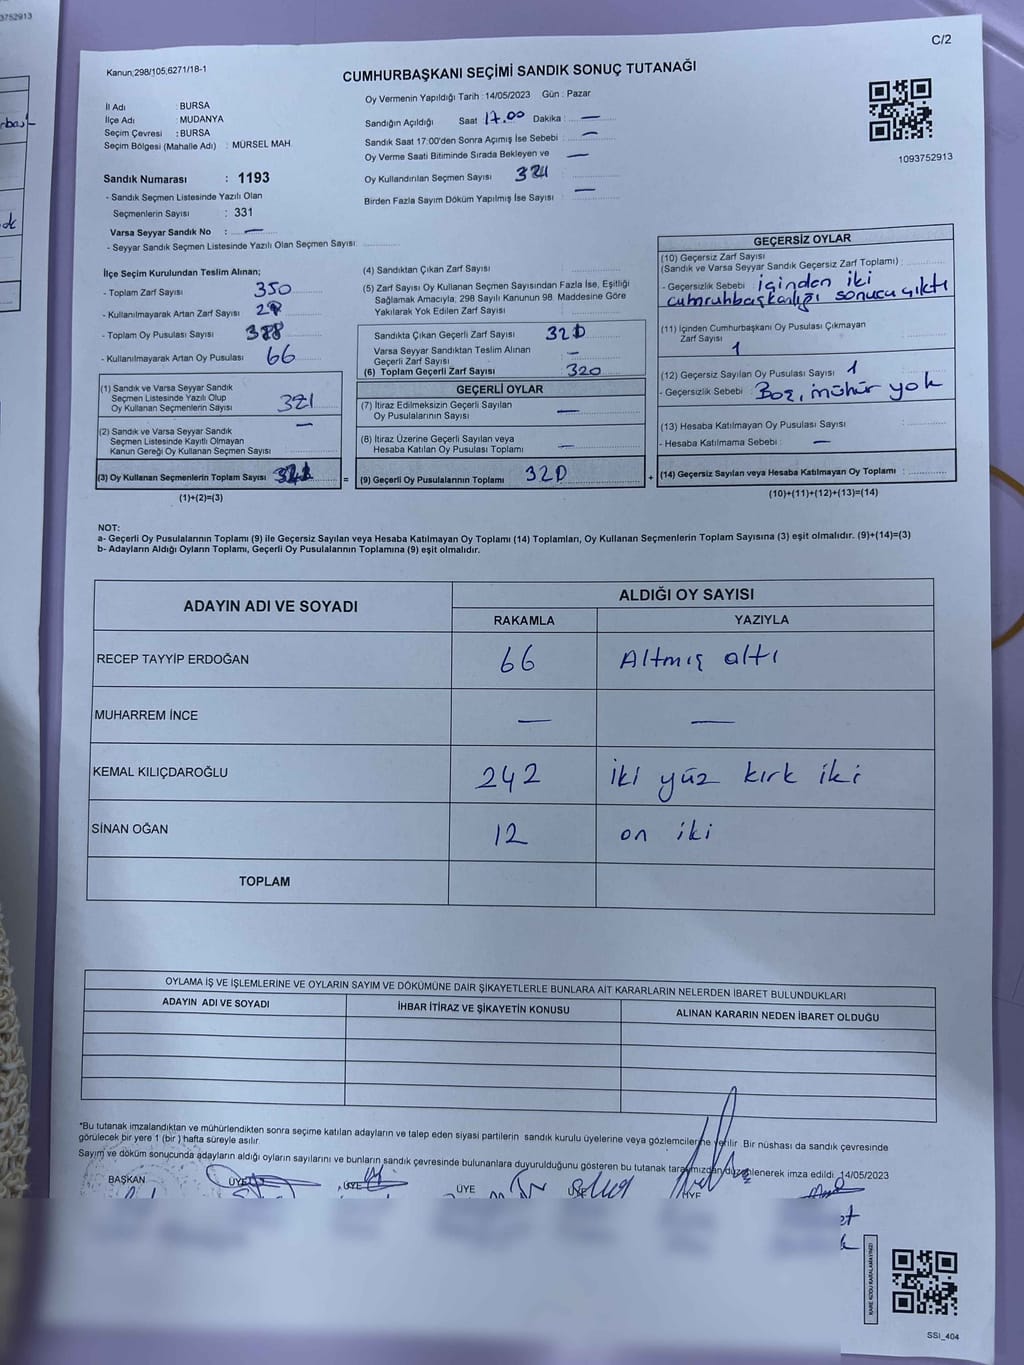 C/2
Kanun:298/105;6271/18-1
CUMHURBAŞKANI SEÇİMİ SANDIK SONUÇ TUTANAĞI
1093752913
İl Adı : BURSA
İlçe Adı : MUDANYA
Seçim Çevresi : BURSA
Seçim Bölgesi (Mahalle Adı) : MÜRSEL MAH.
Sandık Numarası : 1193
- Sandık Seçmen Listesinde Yazılı Olan
Seçmenlerin Sayısı : 331
Varsa Seyyar Sandık No : —
- Seyyar Sandık Seçmen Listesinde Yazılı Olan Seçmen Sayısı:
Oy Vermenin Yapıldığı Tarih : 14/05/2023 Gün : Pazar
Sandığın Açıldığı Saat 17.00 Dakika : —
Sandık Saat 17:00'den Sonra Açımış İse Sebebi : —
Oy Verme Saati Bitiminde Sırada Bekleyen ve —
Oy Kullandırılan Seçmen Sayısı
Birden Fazla Sayım Döküm Yapılmış İse Sayısı : —
İlçe Seçim Kurulundan Teslim Alınan;
- Toplam Zarf Sayısı 350
- Kullanılmayarak Artan Zarf Sayısı :
- Toplam Oy Pusulası Sayısı :
- Kullanılmayarak Artan Oy Pusulası 66
(1) Sandık ve Varsa Seyyar Sandık
Seçmen Listesinde Yazılı Olup
Oy Kullanan Seçmenlerin Sayısı 321
(2) Sandık ve Varsa Seyyar Sandık —
Seçmen Listesinde Kayıtlı Olmayan
Kanun Gereği Oy Kullanan Seçmen Sayısı
(3) Oy Kullanan Seçmenlerin Toplam Sayısı
(1)+(2)=(3)
=
(4) Sandıktan Çıkan Zarf Sayısı
(5) Zarf Sayısı Oy Kullanan Seçmen Sayısından Fazla İse, Eşitliği
Sağlamak Amacıyla; 298 Sayılı Kanunun 98. Maddesine Göre
Yakılarak Yok Edilen Zarf Sayısı
Sandıkta Çıkan Geçerli Zarf Sayısı 320
Varsa Seyyar Sandıktan Teslim Alınan
Geçerli Zarf Sayısı —
(6) Toplam Geçerli Zarf Sayısı 320
GEÇERLİ OYLAR
(7) İtiraz Edilmeksizin Geçerli Sayılan
Oy Pusulalarının Sayısı —
(8) İtiraz Üzerine Geçerli Sayılan veya
Hesaba Katılan Oy Pusulası Toplamı —
(9) Geçerli Oy Pusulalarının Toplamı 320
+
GEÇERSİZ OYLAR
(10) Geçersiz Zarf Sayısı
(Sandık ve Varsa Seyyar Sandık Geçersiz Zarf Toplamı) :
- Geçersizlik Sebebi : içinden iki
cumruhbaşkanlığı sonucu çıktı
(11) İçinden Cumhurbaşkanı Oy Pusulası Çıkmayan
Zarf Sayısı 1
(12) Geçersiz Sayılan Oy Pusulası Sayısı : 1
- Geçersizlik Sebebi : Boş, mühür yok
(13) Hesaba Katılmayan Oy Pusulası Sayısı :
- Hesaba Katılmama Sebebi : —
(14) Geçersiz Sayılan veya Hesaba Katılmayan Oy Toplamı :
(10)+(11)+(12)+(13)=(14)
NOT:
a- Geçerli Oy Pusulalarının Toplamı (9) ile Geçersiz Sayılan veya Hesaba Katılmayan Oy Toplamı (14) Toplamları, Oy Kullanan Seçmenlerin Toplam Sayısına (3) eşit olmalıdır. (9)+(14)=(3)
b- Adayların Aldığı Oyların Toplamı, Geçerli Oy Pusulalarının Toplamına (9) eşit olmalıdır.
ADAYIN ADI VE SOYADI ALDIĞI OY SAYISI
RAKAMLA YAZIYLA
RECEP TAYYİP ERDOĞAN 66 Altmış altı
MUHARREM İNCE — —
KEMAL KILIÇDAROĞLU 242 iki yüz kırk iki
SİNAN OĞAN 12 on iki
TOPLAM
OYLAMA İŞ VE İŞLEMLERİNE VE OYLARIN SAYIM VE DÖKÜMÜNE DAİR ŞİKAYETLERLE BUNLARA AİT KARARLARIN NELERDEN İBARET BULUNDUKLARI
ADAYIN ADI VE SOYADI İHBAR İTİRAZ VE ŞİKAYETİN KONUSU ALINAN KARARIN NEDEN İBARET OLDUĞU
*Bu tutanak imzalandıktan ve mühürlendikten sonra seçime katılan adayların ve talep eden siyasi partilerin sandık kurulu üyelerine veya gözlemcilerine verilir. Bir nüshası da sandık çevresinde
görülecek bir yere 1 (bir) hafta süreyle asılır.
Sayım ve döküm sonucunda adayların aldığı oyların sayılarını ve bunların sandık çevresinde bulunanlara duyurulduğunu gösteren bu tutanak tarafımızdan düzenlenerek imza edildi. 14/05/2023
BAŞKAN ÜYE ÜYE ÜYE ÜYE ÜYE
KARE KODU KARALAMAYINIZ!
SSI_404